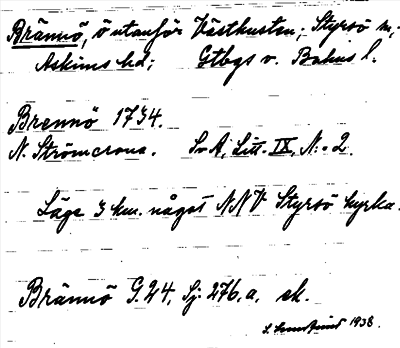 Brännö, ö utanför Västkusten; Styrsö sn;
Askims hd; Gtbgs o. Bohus l.
Brennö 1734.
N. Strömcrona. SvA, Litt. IX, N:o 2.
Läge 3 km. något NNV Styrsö kyrka.
Brännö G.24, Sj. 276, a. sk.
1938